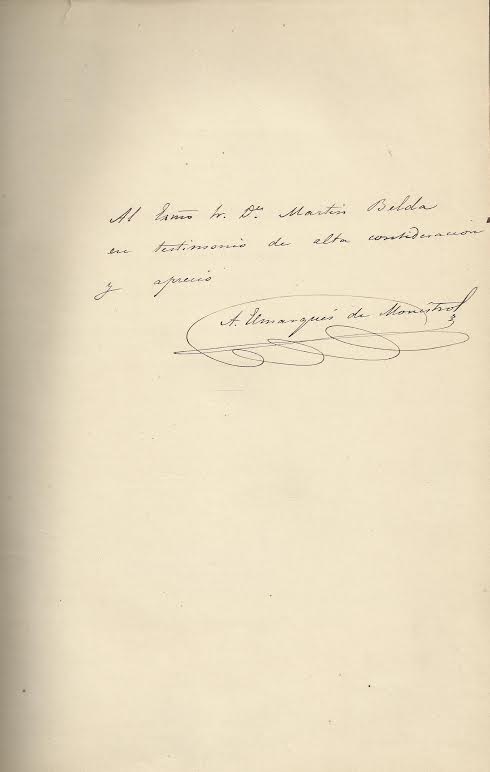 Al Exmo Sr. Dn. Martin Belda
en testimonio de alta consideracion
y aprecio
A. El marques de Monistrol